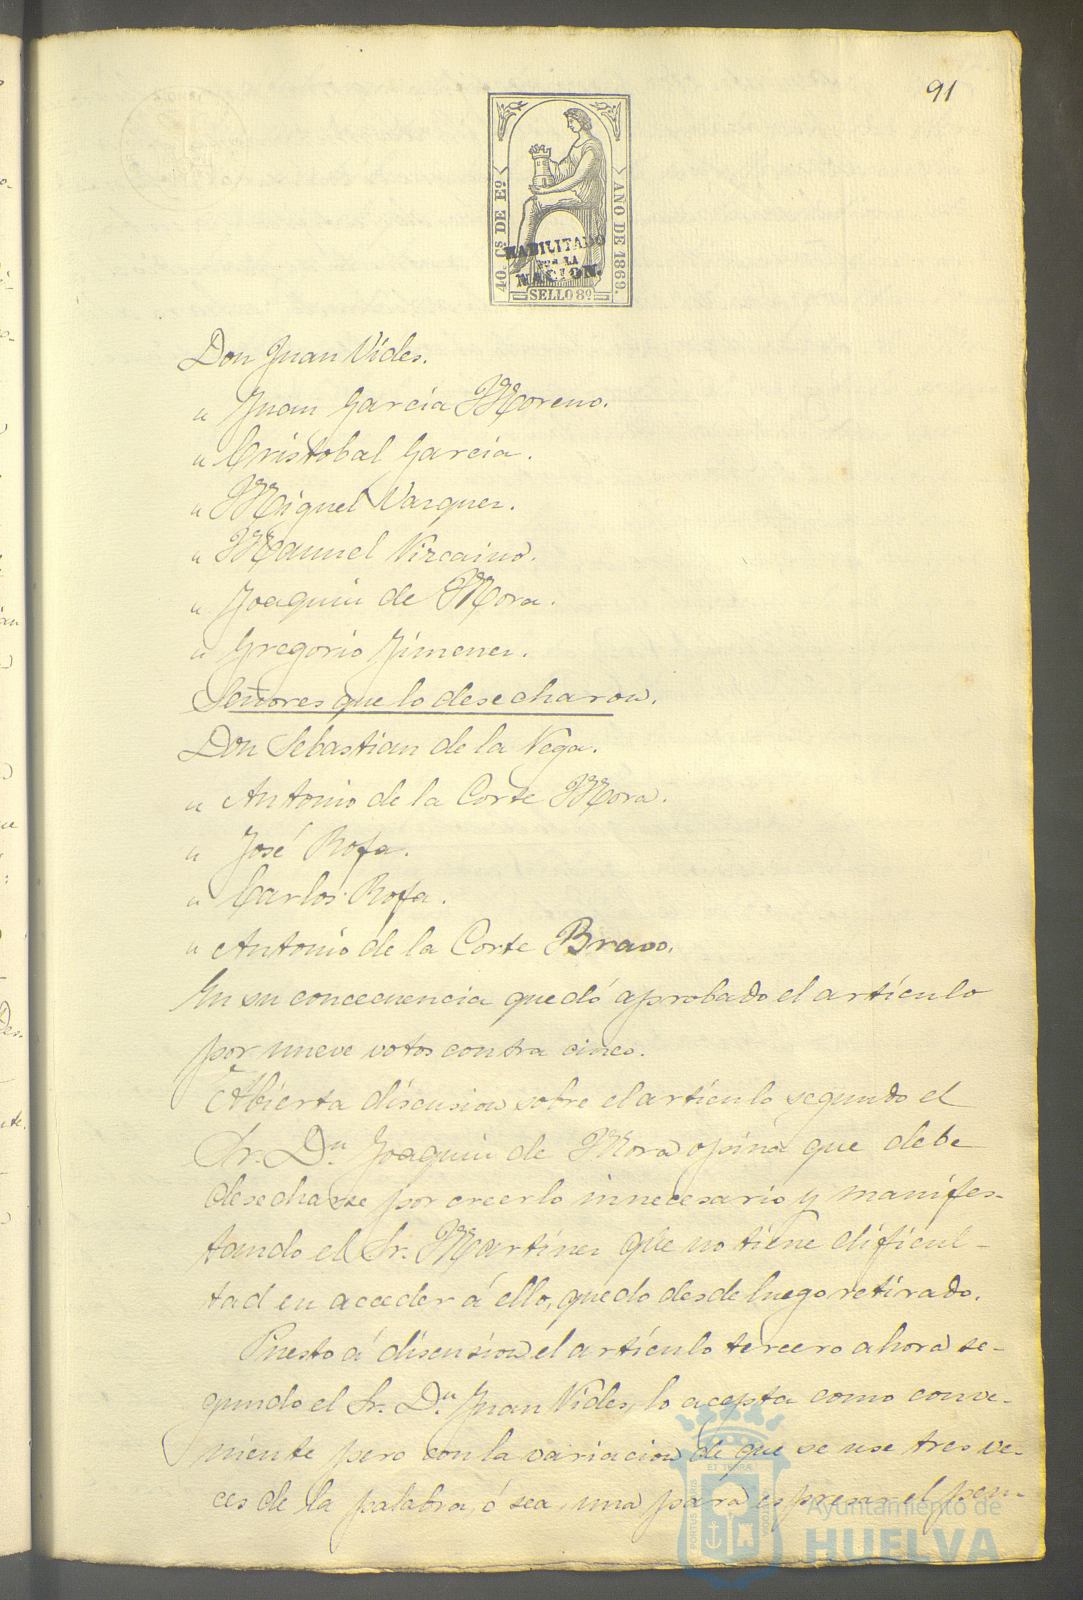 91
40. Cs. DE Eº
AÑO DE 1869.
HABILITADO
POR LA
NACION.
SELLO 8º
Don Juan Vides.
" Juan Garcia Moreno.
" Cristobal Garcia.
" Miguel Vazquez.
" Manuel Vizcaino.
" Joaquin de Mora.
" Gregorio Jimenez.
Señores que lo desecharon.
Don Sebastian de la Vega.
" Antonio de la Corte Mora.
" José Rofa.
" Carlos Rofa.
" Antonio de la Corte Bravo.
En su concecuencia quedó aprobado el artículo
por nueve votos contra cinco.
Abierta discusion sobre el artículo segundo el
Sr. Dn. Joaquin de Mora opina que debe
desecharse por creerlo innecesario y manifes-
tando el Sr. Martinez que no tiene dificul-
tad en acceder á ello, quedo desde luego retirado.
Puesto á discusion el artículo tercero ahora se-
gundo el Sr. Dn. Juan Vides, lo acepta como conve-
niente pero con la variacion de que se use tres ve-
ces de la palabra, ó sea una para espresar el pen-
PORTUS MARIS
ET TERRÆ
CUSTODIA
Ayuntamiento de
HUELVA